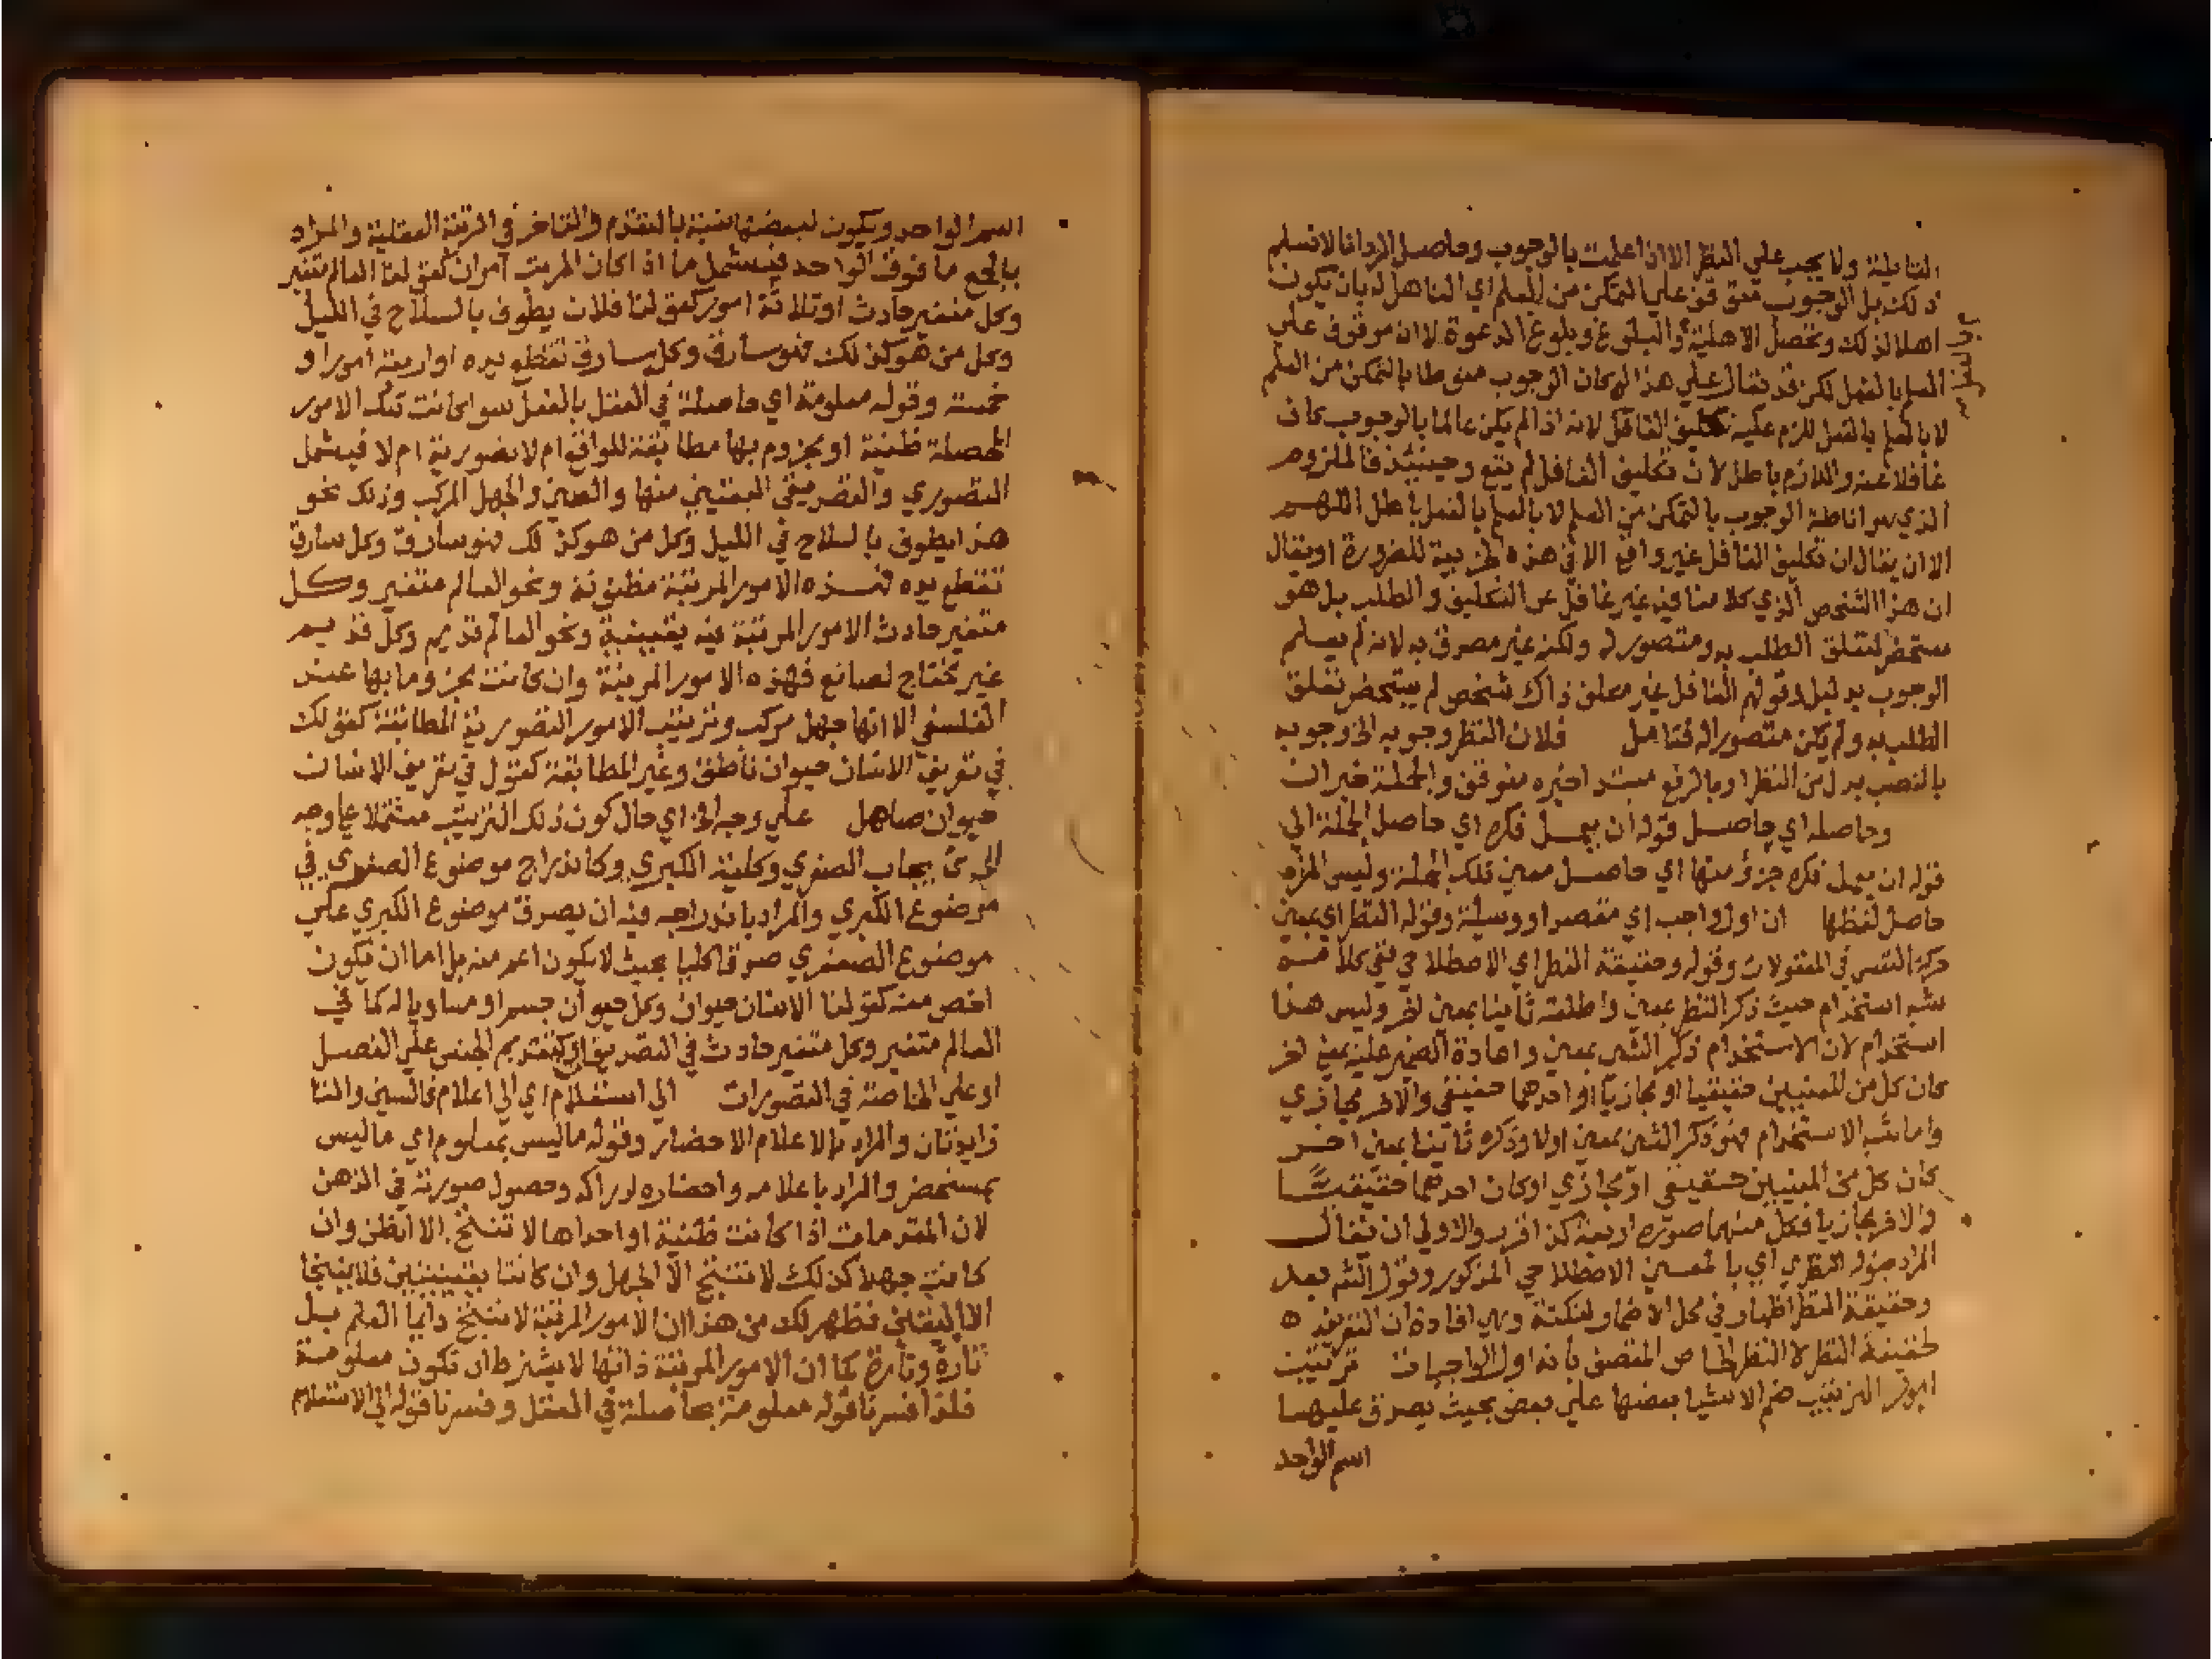 القابلية ولا يجب علي النظر الا ان اعلمت بالوجوب وحاصل الرد انا لا نسلم
ذلك بل الوجوب متوقف علي التمكن من العلم اي التاهل له بان يكون
اهلا لذلك وتحصل الاهلية والبلوغ وبلوغ الدعوة لا انه موقوف علي
العلم بالفعل لكن قد يقال علي هذا لو كان الوجوب منوطا بالتمكن من العلم
لا بالعلم بالفعل للزم عليه تكليف الغافل لانه اذا لم يكن عالما بالوجوب كان
غافلا عنه واللازم باطل لان تكليف الغافل لم يقع وحينئذ فالملزوم
الذي هو اناطة الوجوب بالتمكن من العلم لا بالعلم بالفعل باطل اللهم
الا ان يقال ان تكليف الغافل غير واقع الا في هذه الجزيية للضرورة او يقال
ان هذا الشخص الذي كلامنا فيه غير غافل عن التكليف والطلب بل هو
مستحضر لتعلق الطلب به ومتصور له ولكنه غير مصدق به لانه لم يعلم
الوجوب بدليل وقولهم الغافل غير مكلف ذاك شخص لم يستحضر تعلق
الطلب به ولم يكن متصورا له فتامل فلان النظر وجوبه الخ وجوبه
بالنصب بدل من النظر او بالرفع مبتدا خبره متوقف والجملة خبر ان
وحاصله اي حاصل قوله ان يعمل فكره اي حاصل الجملة التي
قوله ان يعمل فكره جزؤ منها اي حاصل معني تلك الجملة وليس المراد
حاصل لفظها ان اول واجب اي مقصد او وسيلة وقوله النظر اي بمعني
حركة النفس في المعقولات وقوله وحقيقة النظر اي الاصطلاحي ففي كلامه
شبه استخدام حيث ذكر النظر بمعني واطلقه ثانيا بمعني اخر وليس هذا
استخدام لان الاستخدام ذكر الشي بمعني واعادة الضمير عليه بمعني اخر
كان كل من المعنيين حقيقيا او مجازيا او احدهما حقيقي والاخر مجازي
واما شبه الاستخدام فهو ذكر الشي بمعني اولا وذكره ثانيا بمعني اخر
كان كل من المعنيين حقيقي او مجازي او كان احدهما حقيقيا
والاخر مجازيا فكل منهما صوره اربعة كذا قرر والاولي ان يقال
المراد بقوله النظر اي بالمعني الاصطلاحي المذكور وقول الشم بعد
وحقيقة النظر اظهار في محل الاضمار لنكتة وهي افادة ان التعريف
لحقيقة النظر لا النظر الخاص المتصف بانه اول الواجبات ترتيب
امور الترتيب ضم الاشيا بعضها علي بعض بحيث يصدق عليها
اسم الواحد
اسم الواحد ويكون لبعضها نسبة بالتقدم والتاخر في الرتبة العقلية والمراد
بالجمع ما فوق الواحد فيشمل ما اذا كان المرتب امران كقولنا العالم متغير
وكل متغير حادث او ثلاثة امور كقولنا فلان يطوف بالسلاح في الليل
وكل من هو كذلك فهو سارق وكل سارق تقطع يده او اربعة امور او
خمسة وقوله معلومة اي حاصلة في العقل بالفعل سوا كانت تلك الامور
المحصلة ظنية او مجزوم بها مطابقة للواقع ام لا تصورية ام لا فيشمل
التصوري والتصديقي اليقيني منها والظني والجهل المركب وذلك نحو
هذا يطوف بالسلاح في الليل وكل من هو كذلك فهو سارق وكل سارق
تقطع يده فهذه الامور المرتبة مظنونة ونحو العالم متغير وكل
متغير حادث الامور المرتبة فيه يقينية ونحو العالم قديم وكل قديم
غير محتاج لصانع فهذه الامور المرتبة وان كانت مجزوما بها عند
الفلسفي الا انها جهل مركب وترتيب الامور التصورية المطابقة كقولك
في تعريف الانسان حيوان ناطق وغير المطابقة كقول في تعريف الانسان
حيوان صاهل علي وجه الخ اي حال كون ذلك الترتيب مشتملا علي وجه
الخ من ايجاب الصغري وكلية الكبري وكاندراج موضوع الصغري في
موضوع الكبري والمراد باندراجه فيه ان يصدق موضوع الكبري علي
موضوع الصغري صدقا كليا بحيث لا يكون اعم منه بل اما ان يكون
اخص منه كقولنا الانسان حيوان وكل حيوان جسم او مساويا له كما في
العالم متغير وكل متغير حادث في التصديق الخ كتقديم الجنس علي الفصل
او علي الخاصة في التصورات الي استعلام اي الي اعلام فالسين والتا
زايدتان والمراد بالاعلام الاحضار وقوله ما ليس بمعلوم اي ما ليس
بمستحضر والمراد باعلامه واحضاره ادراكه وحصول صورته في الذهن
لان المقدمات اذا كانت ظنية او احداها لا تنتج الا الظن وان
كانت جهلا كذلك لا تنتج الا الجهل وان كانتا يقينيتين فلا ينتجا
الا اليقين فظهر لك من هذا ان الامور المرتبة لا تنتج دايما العلم بل
تارة وتارة كما ان الامور المرتبة ذاتها لا يشترط ان تكون معلومة
فلذا فسرنا قوله معلومة بحاصلة في العقل وفسرنا قوله الي الاستعلام